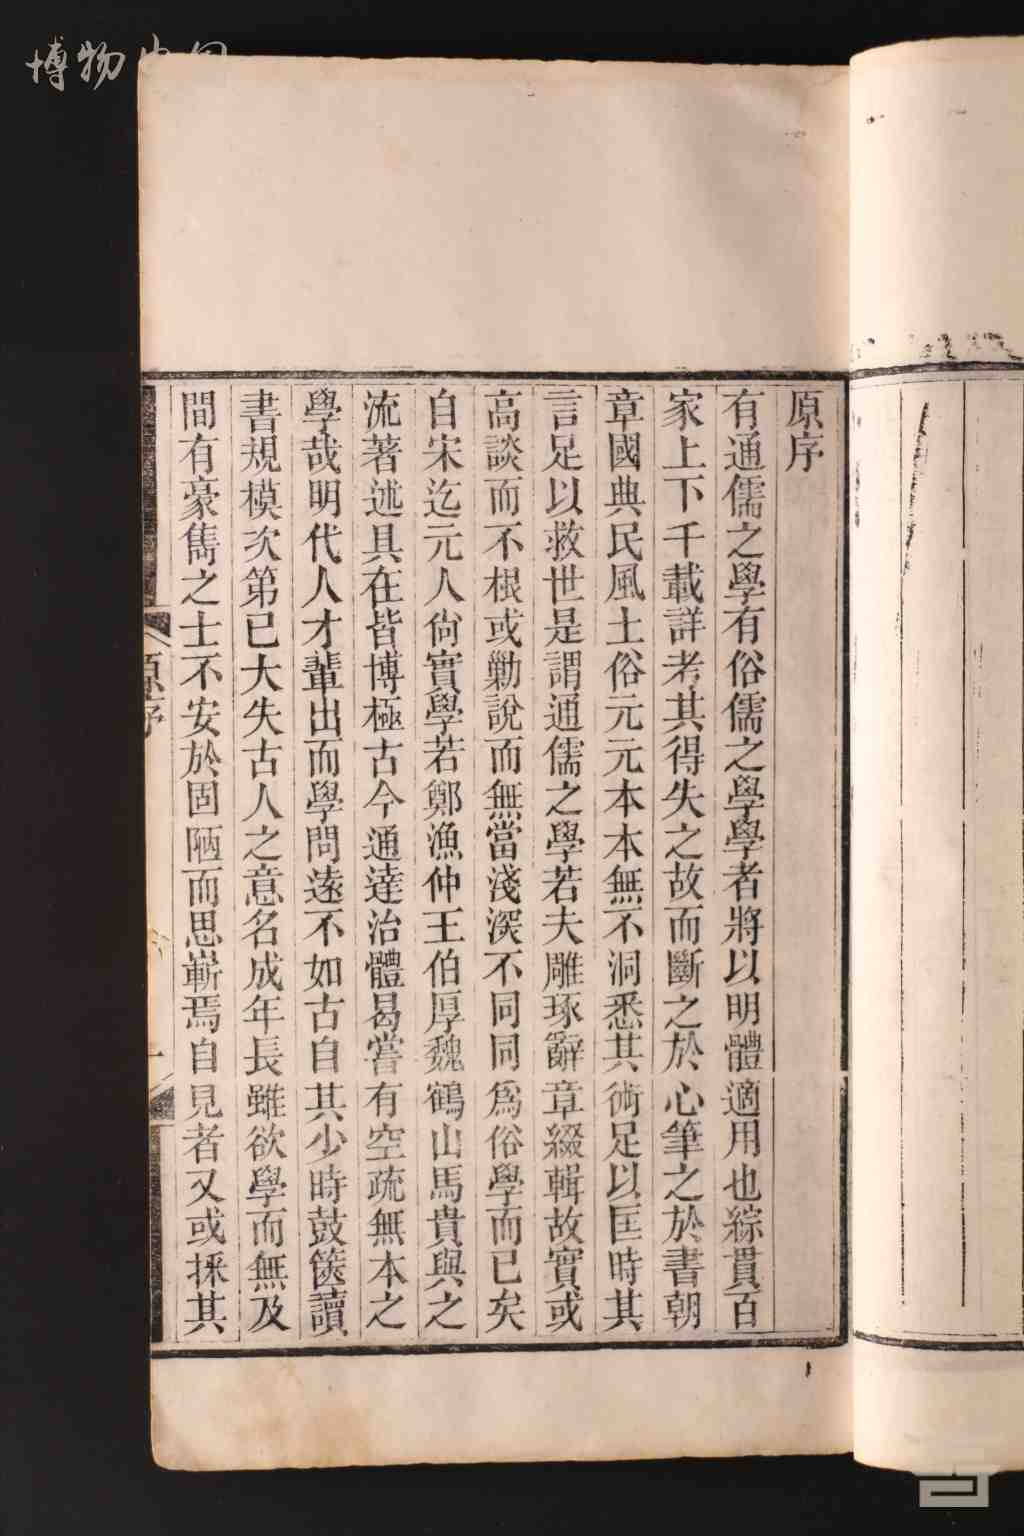 原序
有通儒之學有俗儒之學學者將以明體適用也綜貫百
家上下千載詳考其得失之故而斷之於心筆之於書朝
章國典民風土俗元元本本無不洞悉其術足以匡時其
言足以救世是謂通儒之學若夫雕琢辭章綴輯故實或
高談而不根或勦說而無當淺深不同同爲俗學而已矣
自宋迄元人尙實學若鄭漁仲王伯厚魏鶴山馬貴與之
流著述具在皆博極古今通達治體曷嘗有空疏無本之
學哉明代人才輩出而學問遠不如古自其少時鼓篋讀
書規模次第已大失古人之意名成年長雖欲學而無及
間有豪雋之士不安於固陋而思嶄焉自見者又或採其
原序
一
博物